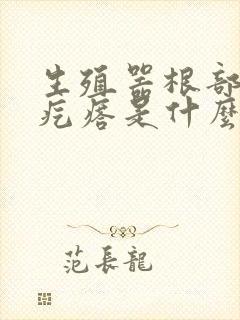 生殖器根部
疙瘩是什麼
范長龍